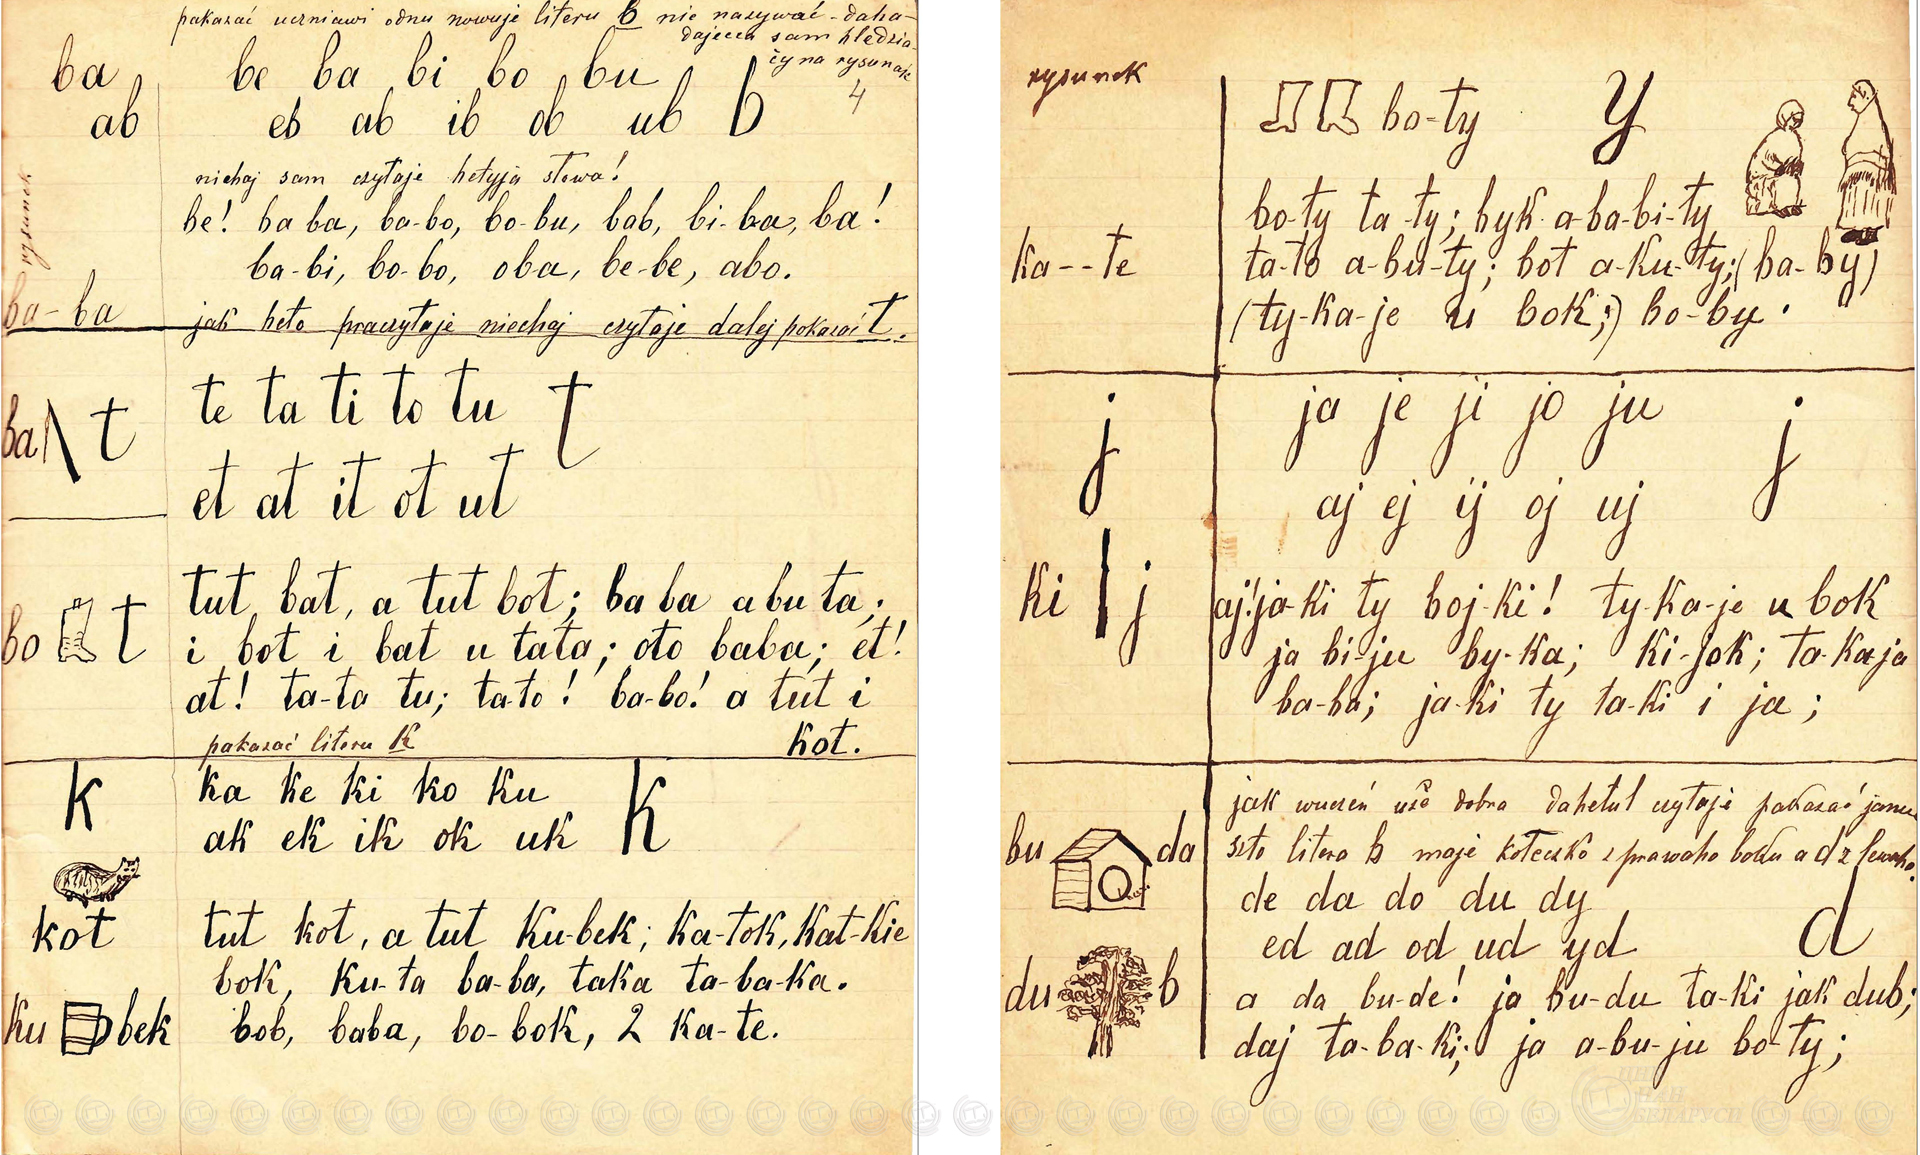 pakazać uczniawi odnu nowuje literu b nie nazywać - daha-
dajecca sam hledzia-
čy na rysunak
ba be ba bi bo bu b 4
ab eb ab ib ob ub
niechaj sam czytaje hetyja słowa!
rysunek
be! ba ba, ba-bo, bo-bu, bab, bi-ba, ba!
ba-bi, bo-bo, oba, be-be, abo.
ba-ba jak heto praczytaje niechaj czytaje dalej pokazać t.
ba t te ta ti to tu t
et at it ot ut
tut bat, a tut bot; ba ba abu ta;
bo t i bot i bat u tata; oto baba; et!
at! ta-ta tu; ta-to! ba-bo! a tut i
pakazać literu k kot.
k ka ke ki ko ku k
ak ek ik ok uk
kot tut kot, a tut ku-bek; ka-tok, kat-kie
bok, ku-ta ba-ba, taka ta-ba-ka.
ku bek bob, baba, bo-bok, 2 ka-te.
rysunek
bo-ty y
bo-ty ta-ty; byk a-ba-bi-ty
ka--te ta-to a-bu-ty; bot a-ku-ty; (ba-by)
(ty-ka-je u bok;) bo-by.
j ja je ji jo ju j
aj ej ij oj uj
ki j aj! ja-ki ty boj-ki! ty-ka-je u bok
ja bi-ju by-ka; ki-jok; ta-ka ja
ba-ba; ja-ki ty ta-ki i ja;
jak wuczeń užo dobra dahetul czytaje pakazać jamu
bu da szto litera b maje kołeczko z prawaho boku a d z lewaho.
de da do du dy
ed ad od ud yd d
du b a da bu-de! ja bu-du ta-ki jak dub;
daj ta-ba-ki; ja a-bu-ju bo-ty;
ЦНБ
НАН
БЕЛАРУСИ